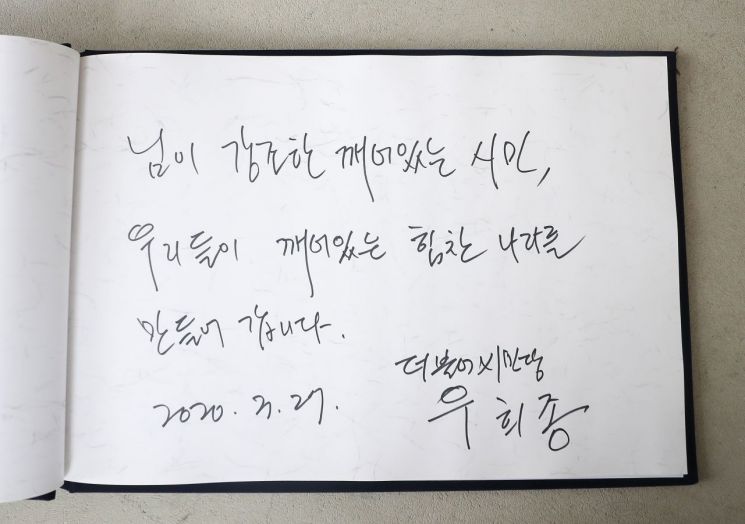 님이 강조한 깨어있는 시민,
우리들이 깨어있는 힘찬 나라를
만들어 갑니다.
더불어시민당
2020. 3. 27. 우희종